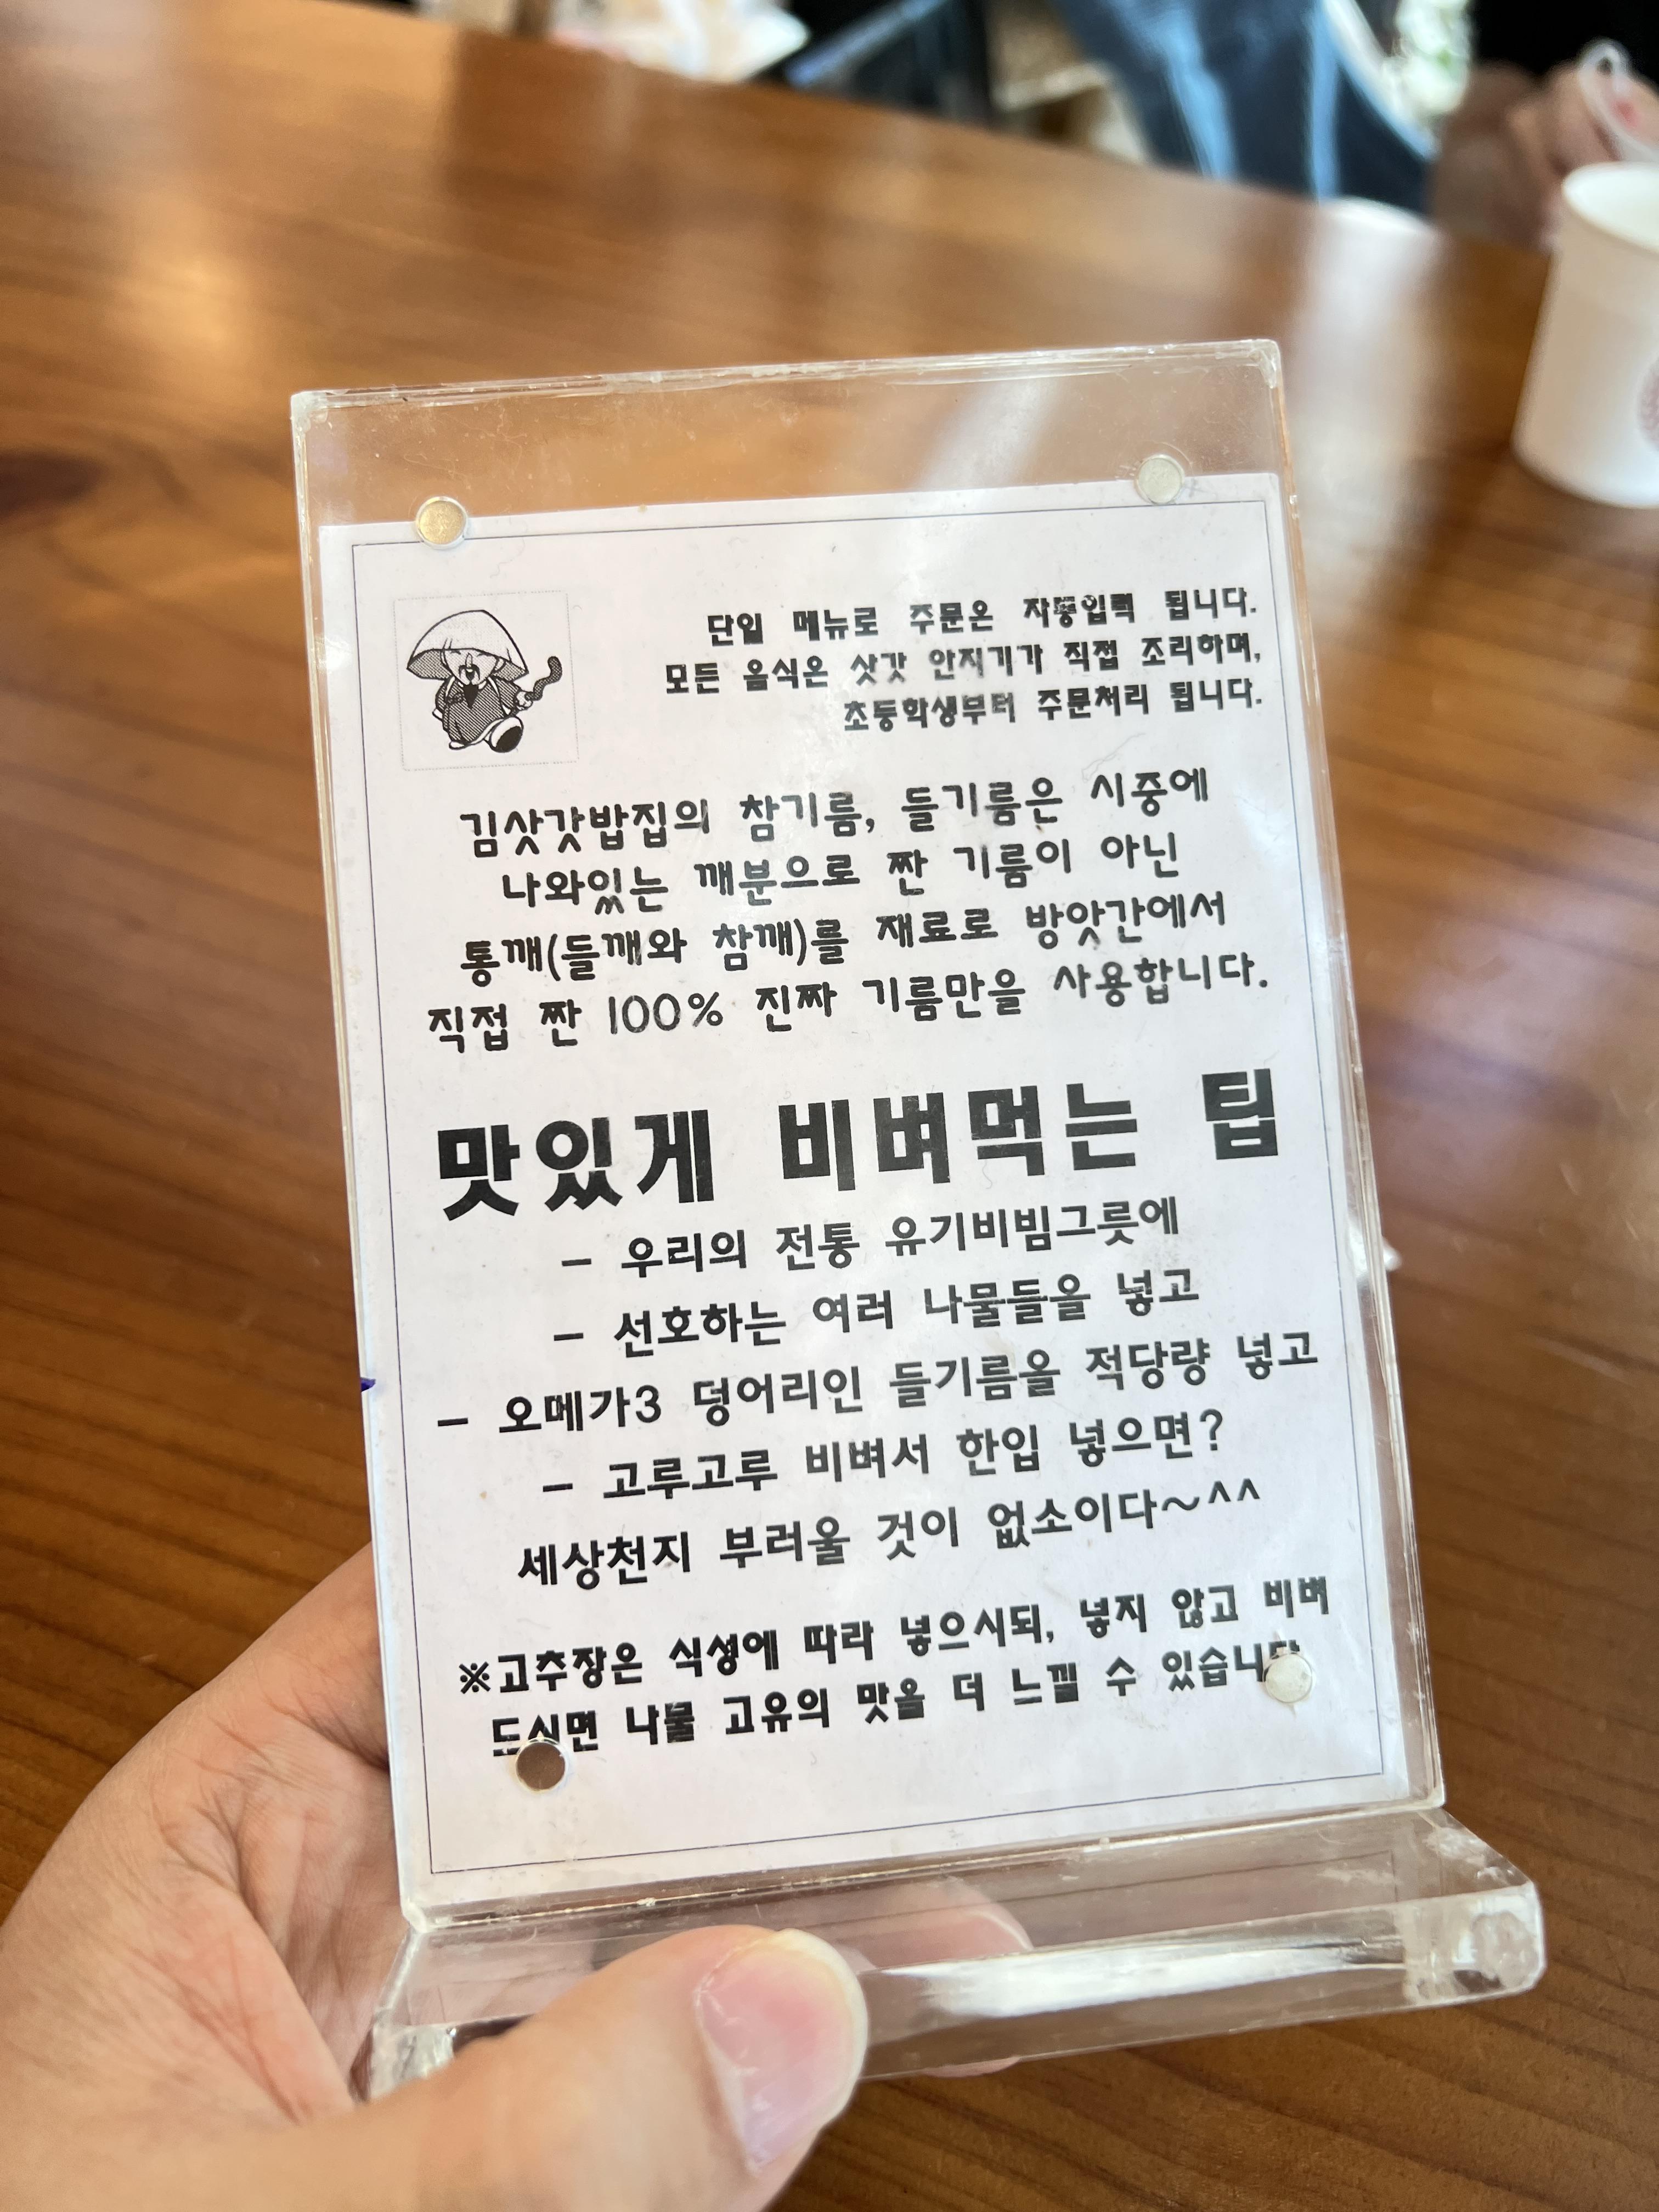 단일 메뉴로 주문은 자동입력 됩니다.
모든 음식은 삿갓 안지기가 직접 조리하며,
초등학생부터 주문처리 됩니다.
김삿갓밥집의 참기름, 들기름은 시중에
나와있는 깨분으로 짠 기름이 아닌
통깨(들깨와 참깨)를 재료로 방앗간에서
직접 짠 100% 진짜 기름만을 사용합니다.
맛있게 비벼먹는 팁
- 우리의 전통 유기비빔그릇에
- 선호하는 여러 나물들을 넣고
- 오메가3 덩어리인 들기름을 적당량 넣고
- 고루고루 비벼서 한입 넣으면?
세상천지 부러울 것이 없소이다~^^
※고추장은 식성에 따라 넣으시되, 넣지 않고 비벼
드시면 나물 고유의 맛을 더 느낄 수 있습니다